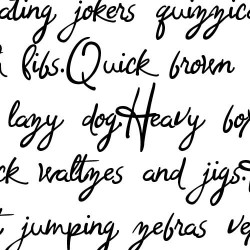 ading jokers quizzica
fibs. Quick brown
lazy dog. Heavy bo
ck waltzes and jigs.
t jumping zebras va